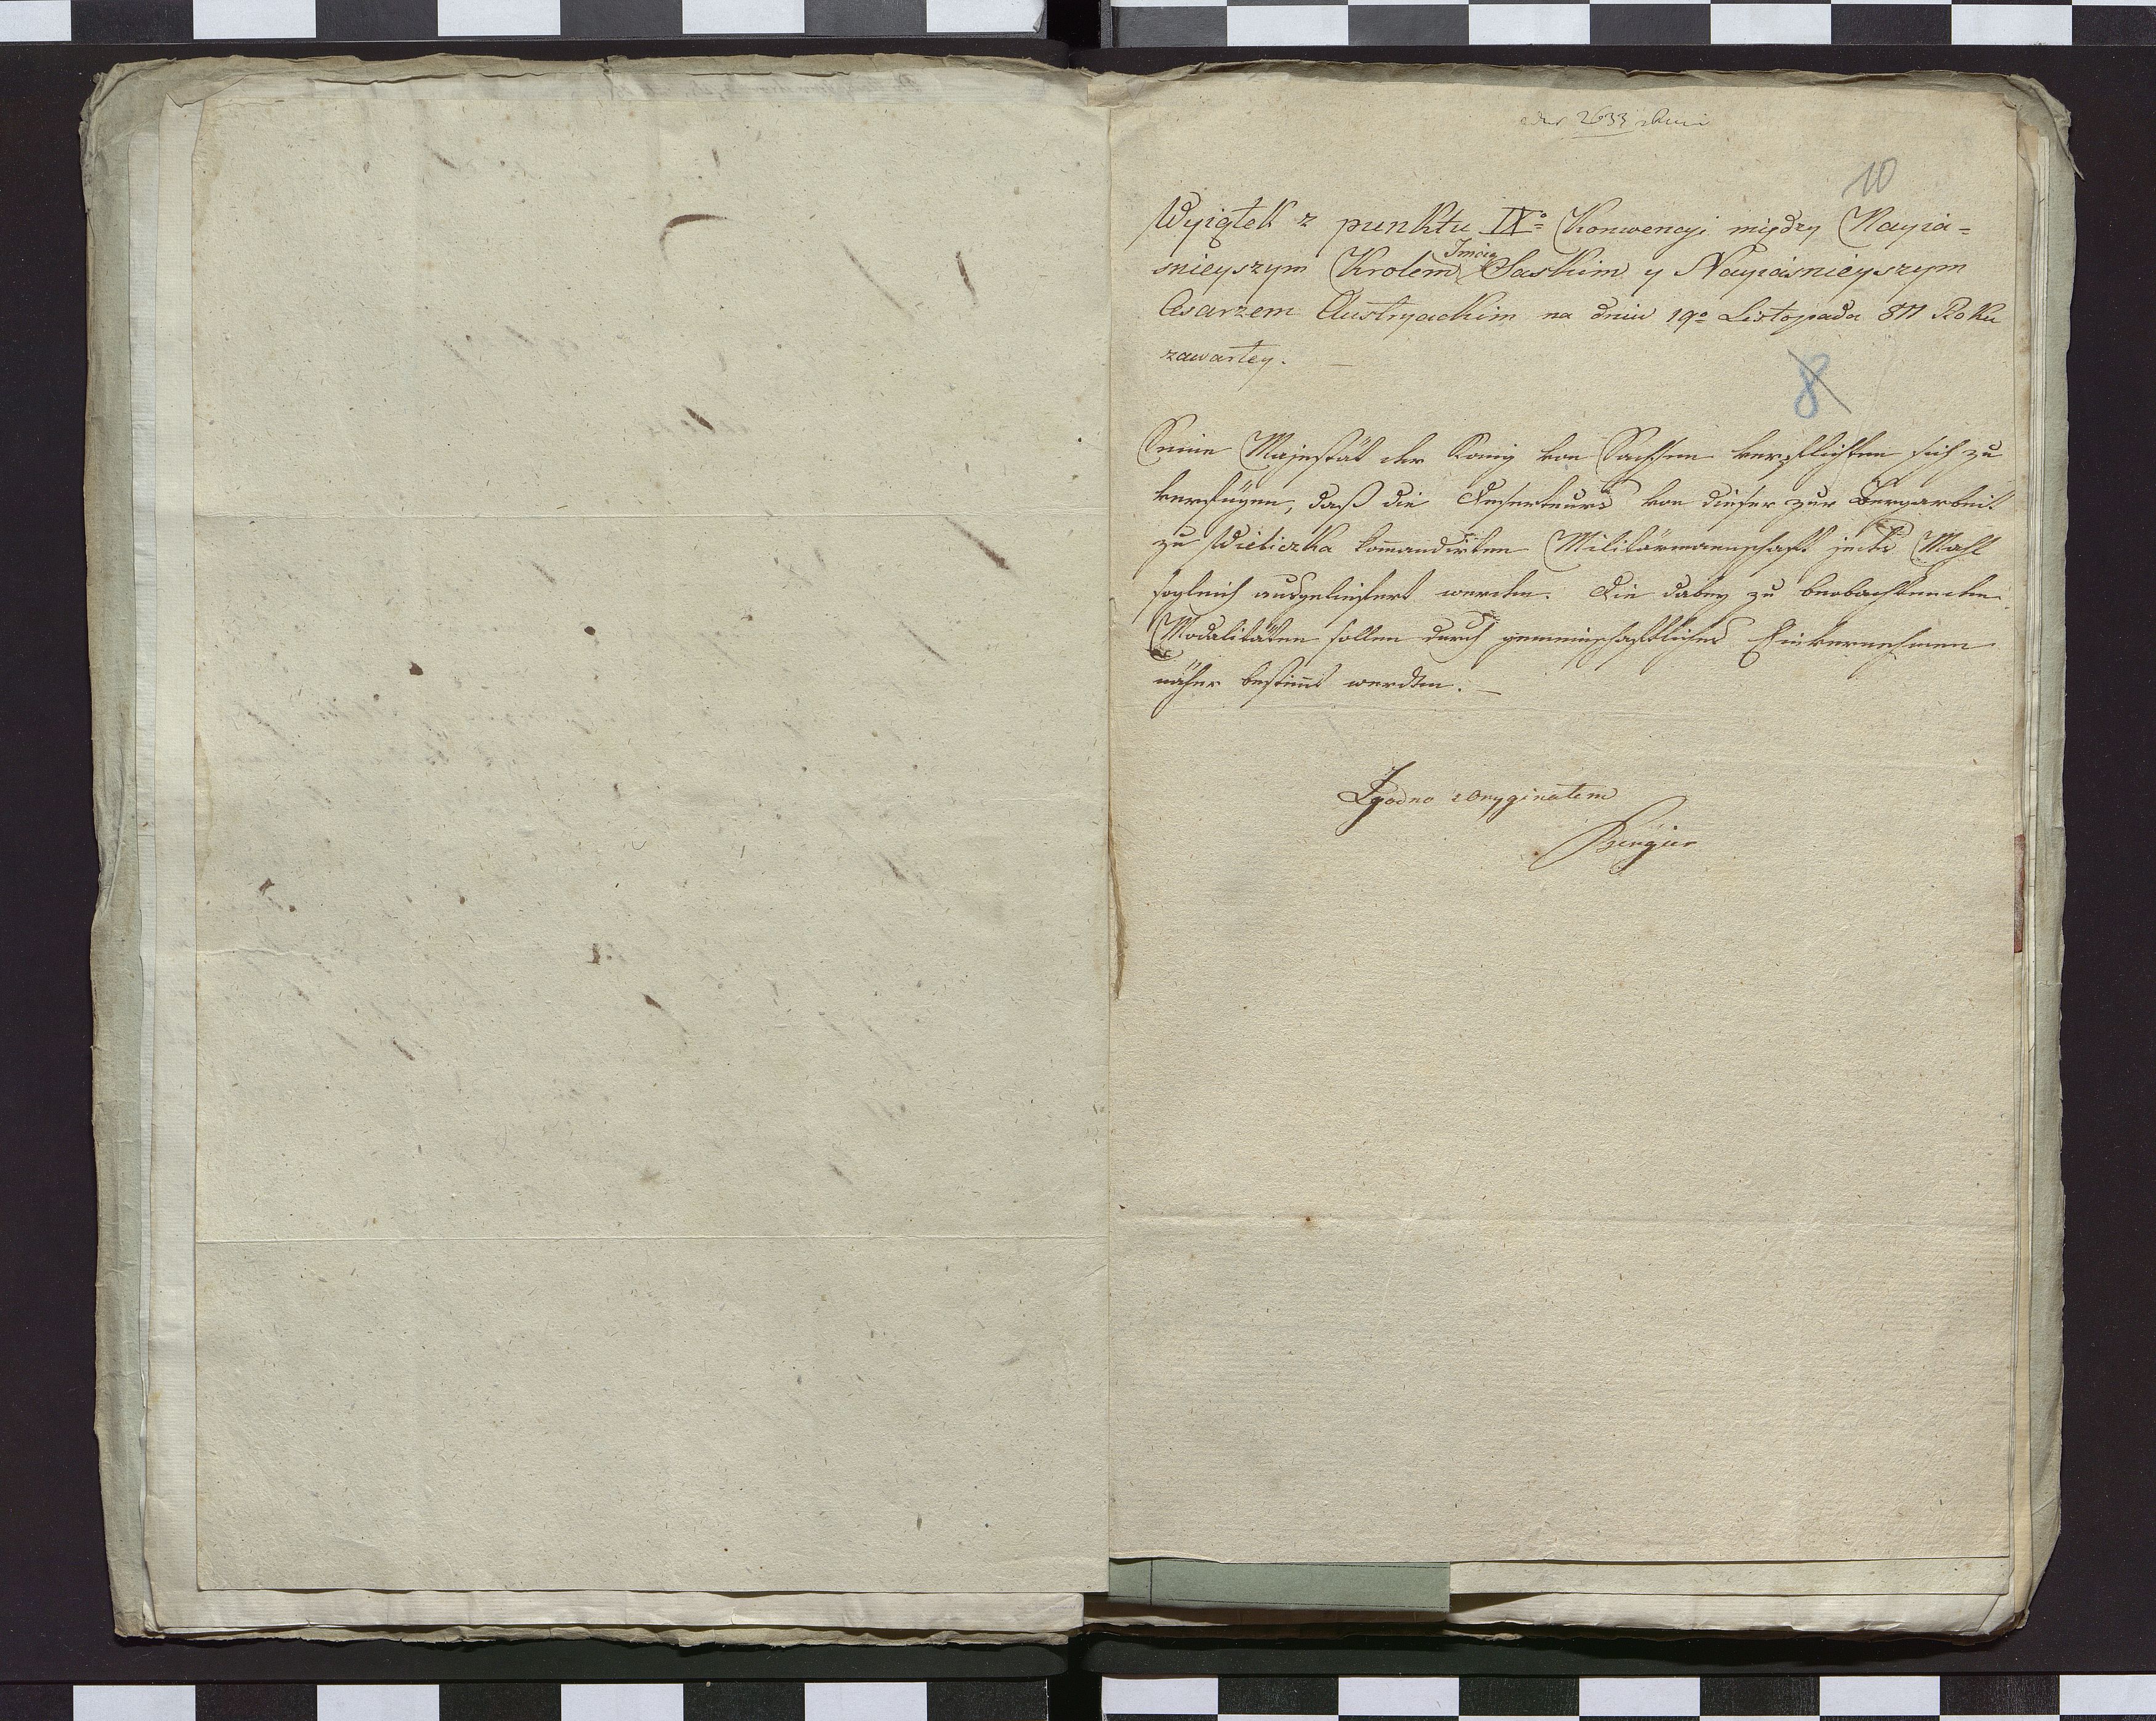 2633
10
Wyiątek z punktu IX° Konwencyi między Nayia-
snieyszym Krolem Imcią Saskim y Nayiasnieyszym
Cesarzem Austryackim na dniu 19° Listopada 811 Roku
zawartey. –
8
Seine Majestät der König von Sachsen verpflichten sich zu
verfügen, daß die Deserteurs von dieser zur Bergarbeit
zu Wieliczka kom̄andirten Militärmannschaft jedes Mahl
sogleich ausgeliefert werden. Die dabey zu beobachtenden
Modalitäten sollen durch gemeinschaftliches Einvernehmen
näher bestim̄t werden. –
Zgodno z Oryginałem